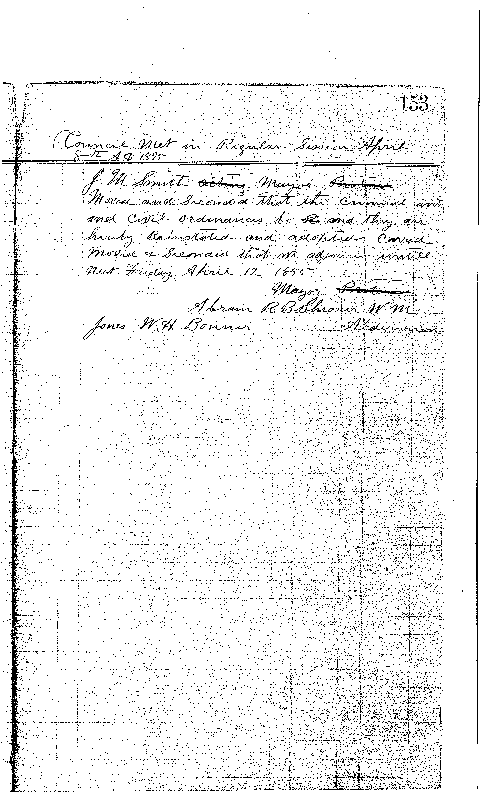 153
Council Met in Regular Session April
8th AD 1895
J M Smith acting Mayor
Moved and Seconded that the Criminal an
and Civil Ordinances be and they are
hereby Reinstated and adopted Carried
Moved & Seconded that we adjourn untill
next Friday April 12 1895
Mayor
Abram R B Shroud W M
Jones W. H Bonner Aldermen